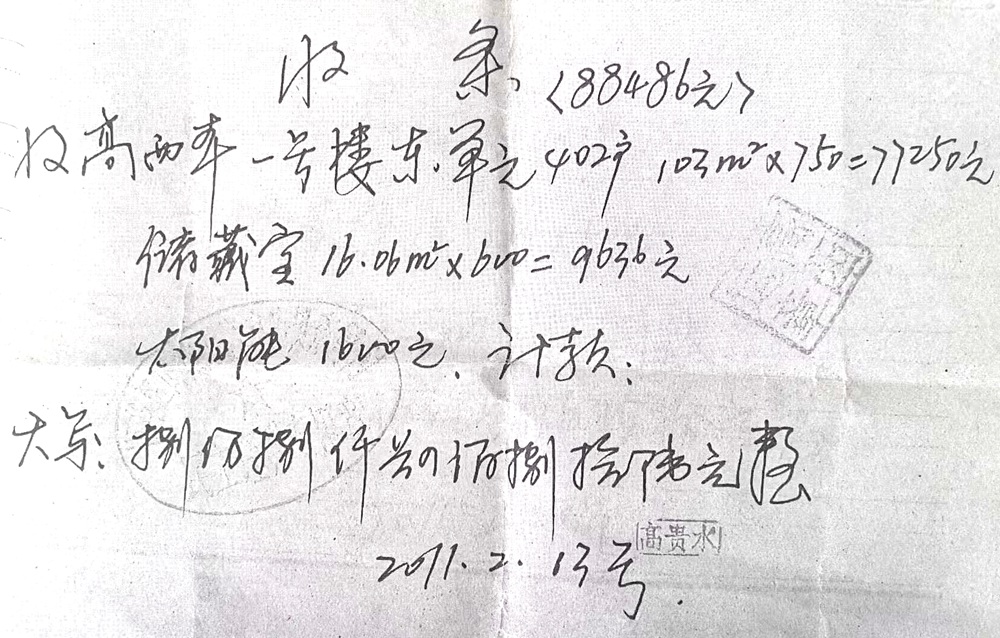 收条
<88486元>
收高两年一号楼东单元402户 103m²×750=77250元
储藏室 16.06m²×600=9636元
太阳能 1600元. 计款:
大写: 捌仟捌 仟 佰捌拾陆元整
高贵水
2011.2.13号.